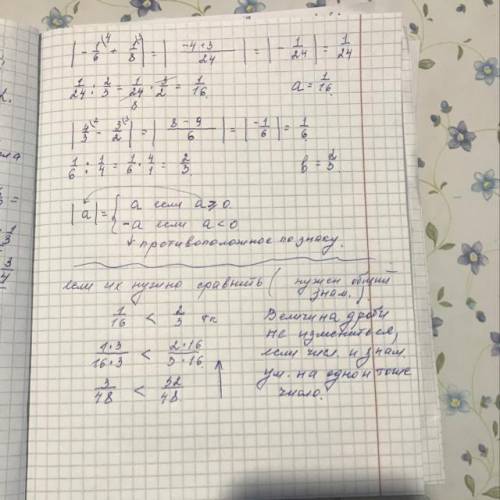 |-1/6 \4 + 1/8 \3| = |(-4+3)/24| = |-1/24| = 1/24
1/24 : 2/3 = 1/24 · 3/2 = 1/16 a = 1/16
|4/3 \2 - 3/2 \3| = |(8-9)/6| = |-1/6| = 1/6
1/6 : 1/4 = 1/6 · 4/1 = 2/3 в = 2/3
|a| = { a если a ≥ 0
-a если a < 0
противоположное по знаку.
если их нужно сравнить (нужен общий знам.)
1/16 < 2/3 тк
(1·3)/(16·3) < (2·16)/(3·16)
3/48 < 32/48
Величина дроби
не измениться,
если числ. и знам.
ум. на одно и тоже
число.